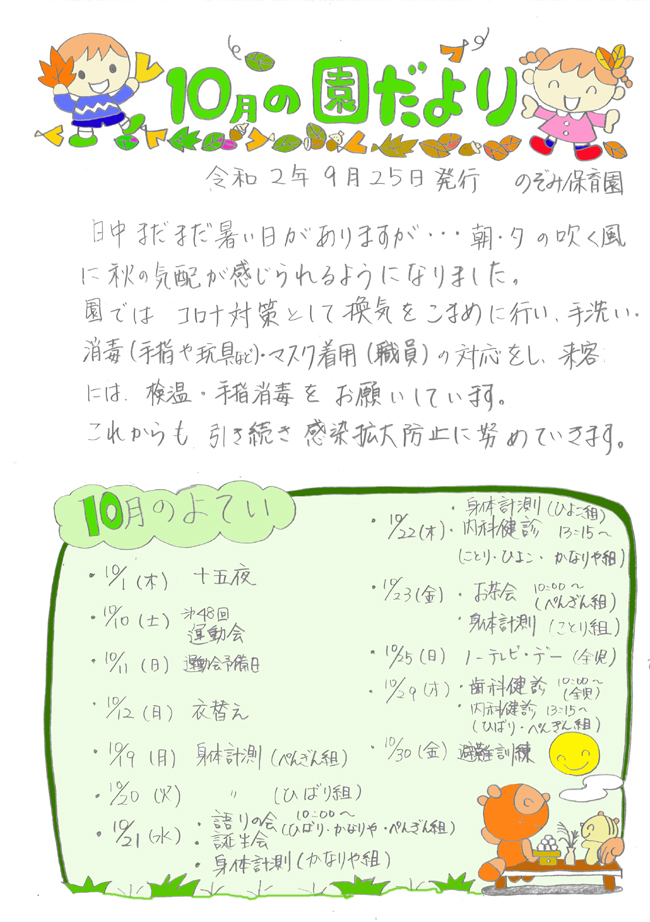 10月の園だより
令和2年9月25日発行 のぞみ保育園
日中まだまだ暑い日がありますが・・・朝・夕の吹く風
に秋の気配が感じられるようになりました。
園では コロナ対策として換気をこまめに行い、手洗い・
消毒(手指や玩具など)・マスク着用(職員)の対応をし、来客
には、検温・手指消毒をお願いしています。
これからも引き続き感染拡大防止に努めていきます。
10月のよてい
・10/1(木) 十五夜
・10/10(土) 第48回
運動会
・10/11(日) 運動会予備日
・10/12(月) 衣替え
・10/19(月) 身体計測(ぺんぎん組)
・10/20(火) 〃 (ひばり組)
・10/21(水) ・語りの会 10:00～
(ひばり・かなりや・ぺんぎん組)
・誕生会
・身体計測(かなりや組)
・10/22(木) ・身体計測(ひよこ組)
・内科健診 13:15～
(ことり・ひよこ・かなりや組)
・10/23(金) ・お茶会 10:00～
(ぺんぎん組)
・身体計測(ことり組)
・10/25(日) ノーテレビ・デー(全児)
・10/29(木) ・歯科健診 10:00～
(全児)
・内科健診 13:15～
(ひばり・ぺんぎん組)
・10/30(金) 避難訓練